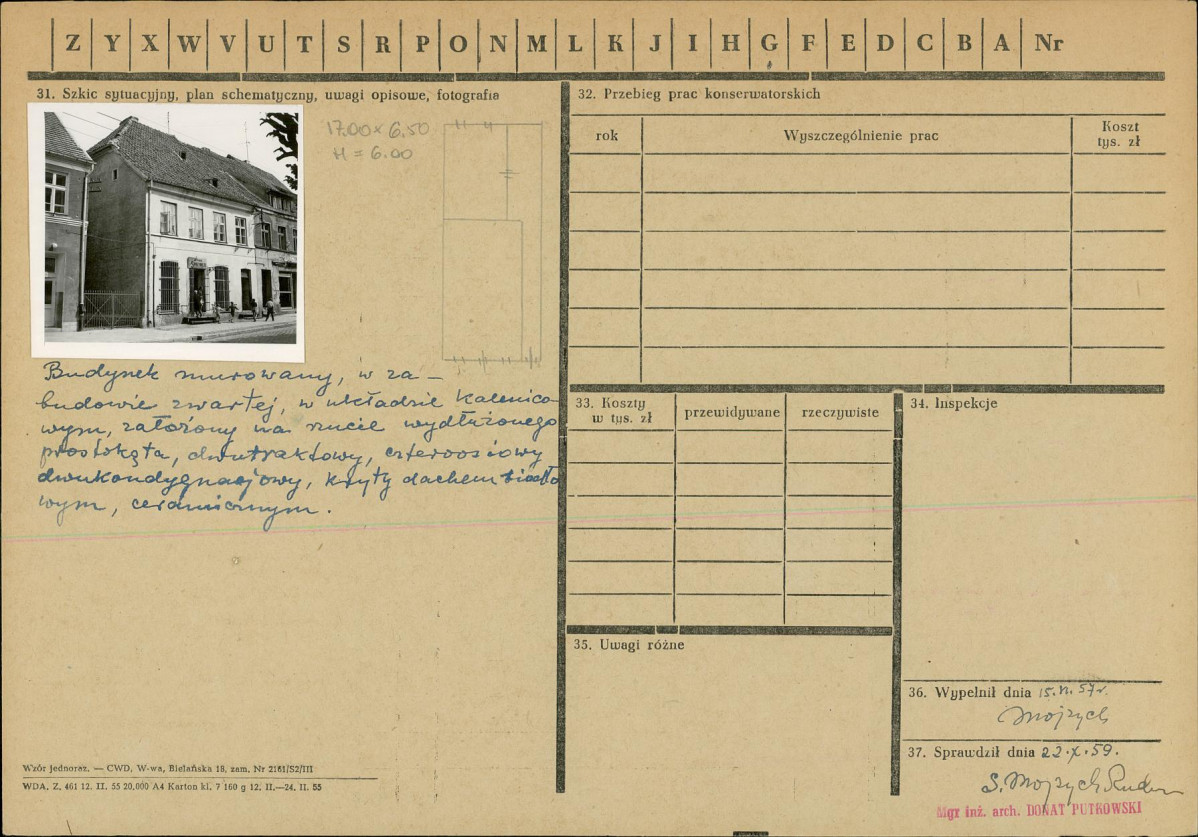 Z Y X W V U T S R P O N M L K J I H G F E D C B A Nr
31. Szkic sytuacyjny, plan schematyczny, uwagi opisowe, fotografia
17.00 x 6.50
H = 6.00
Budynek murowany, w za-
budowie zwartej, w układzie kalenico-
wym, założony na rzucie wydłużonego
prostokąta, dwutraktowy, czteroosiowy
dwukondygnacjowy, kryty dachem siodło
wym, ceramicznym.
Wzór jednoraz. — CWD, W-wa, Bielańska 18, zam. Nr 2161/S2/III
WDA. Z. 461 12. II. 55 20.000 A4 Karton kl. 7 160 g 12. II.—24. II. 55
32. Przebieg prac konserwatorskich
rok Wyszczególnienie prac Koszt
tys. zł
33. Koszty
w tys. zł
przewidywane rzeczywiste
34. Inspekcje
35. Uwagi różne
36. Wypełnił dnia 15.VI.57r.
Mojzych
37. Sprawdził dnia 22.X.59.
S. Mojzych
Mgr inż. arch. DONAT PUTKOWSKI